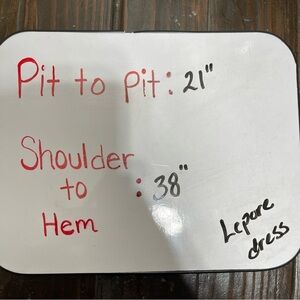 Pit to pit: 21"
Shoulder
to : 38"
Hem
Lepore
dress